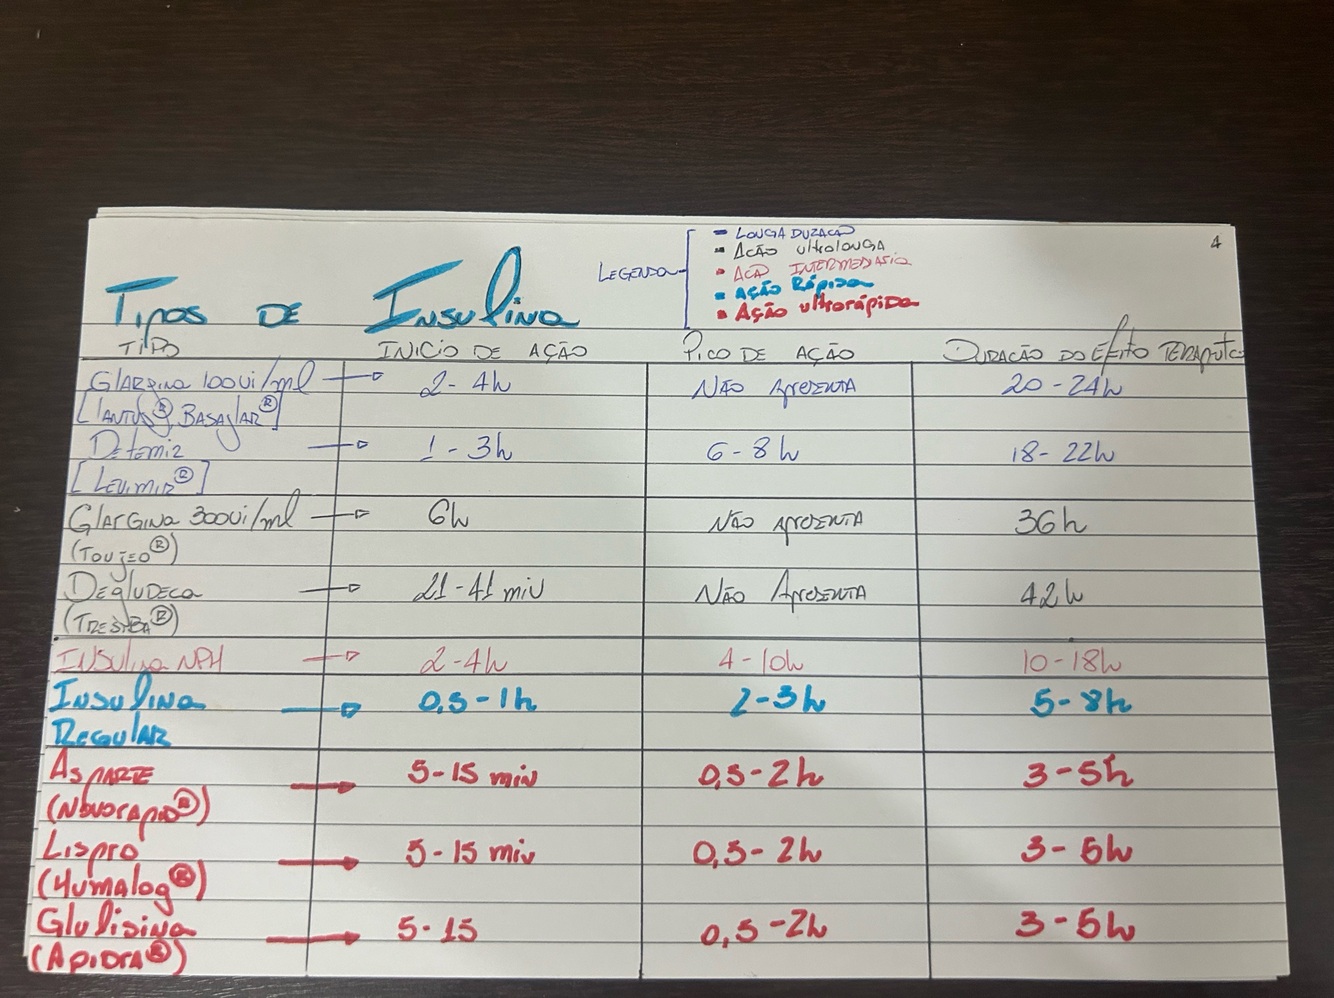 4
Legenda
- Longa duração
- Ação ultralonga
- Ação intermediária
- Ação Rápida
- Ação ultrarápida
Tipos de Insulina
Tipo Início de Ação Pico de Ação Duração do Efeito Teraputc
Glargina 100Ui/ml → 2-4h Não apresenta 20-24h
[Lantus® Basaglar®]
Detemir → 1-3h 6-8h 18-22h
[Levimir®]
Glargina 300Ui/ml → 6h Não apresenta 36h
(Toujeo®)
Degludeca → 21-41 min Não Apresenta 42h
(Tresiba®)
Insulina NPH → 2-4h 4-10h 10-18h
Insulina → 0,5-1h 2-3h 5-8h
Regular
Asparte → 5-15 min 0,5-2h 3-5h
(Novorapid®)
Lispro → 5-15 min 0,5-2h 3-5h
(Humalog®)
Glulisina → 5-15 0,5-2h 3-5h
(Apidra®)